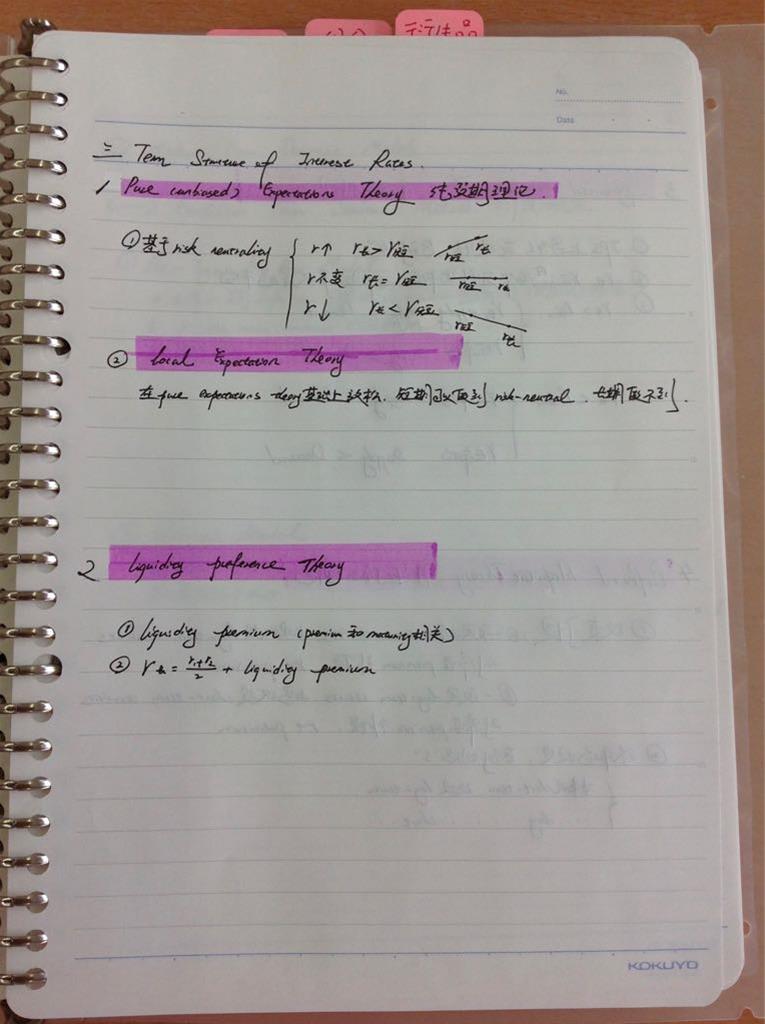 衍生品
No.
Date
三 Term Structure of Interest Rates.
1 Pure (unbiased) Expectations Theory 纯预期理论.
① 基于risk neutrality { r↑ r长>r短 r短 r长
r不变 r长=r短 r短 r长
r↓ r长<r短 r短 r长
② Local Expectation Theory
在pure expectations theory基础上放松. 短期可以做到risk-neutral. 长期做不到.
2 liquidity preference Theory
① liquidity premium (premium和maturity相关)
② r长 = (r1+r2)/2 + liquidity premium
KOKUYO